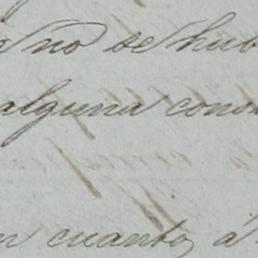 no se hub
alguna cons
en cuanto á